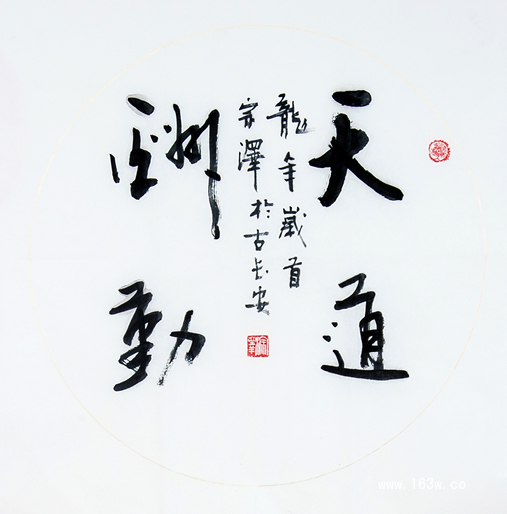 天道
酬勤
龍年歲首
宗澤於古長安
www.163w.co